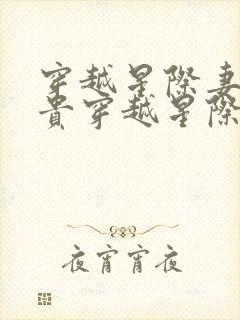 穿越星際妻
貴穿越星際
夜宵宵夜